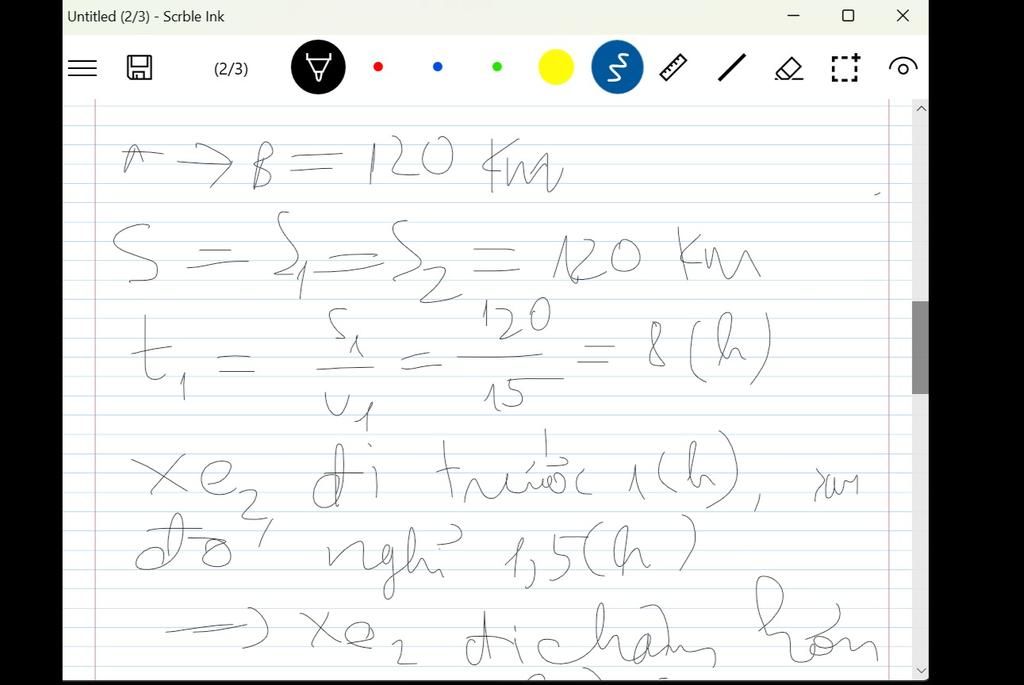 Untitled (2/3) - Scrble Ink
(2/3)
A → B = 120 km
S = S1 = S2 = 120 km
t1 = S1/v1 = 120/15 = 8 (h)
xe2 đi trước 1(h), sau
đó nghỉ 1,5(h)
→ xe2 đi chậm hơn